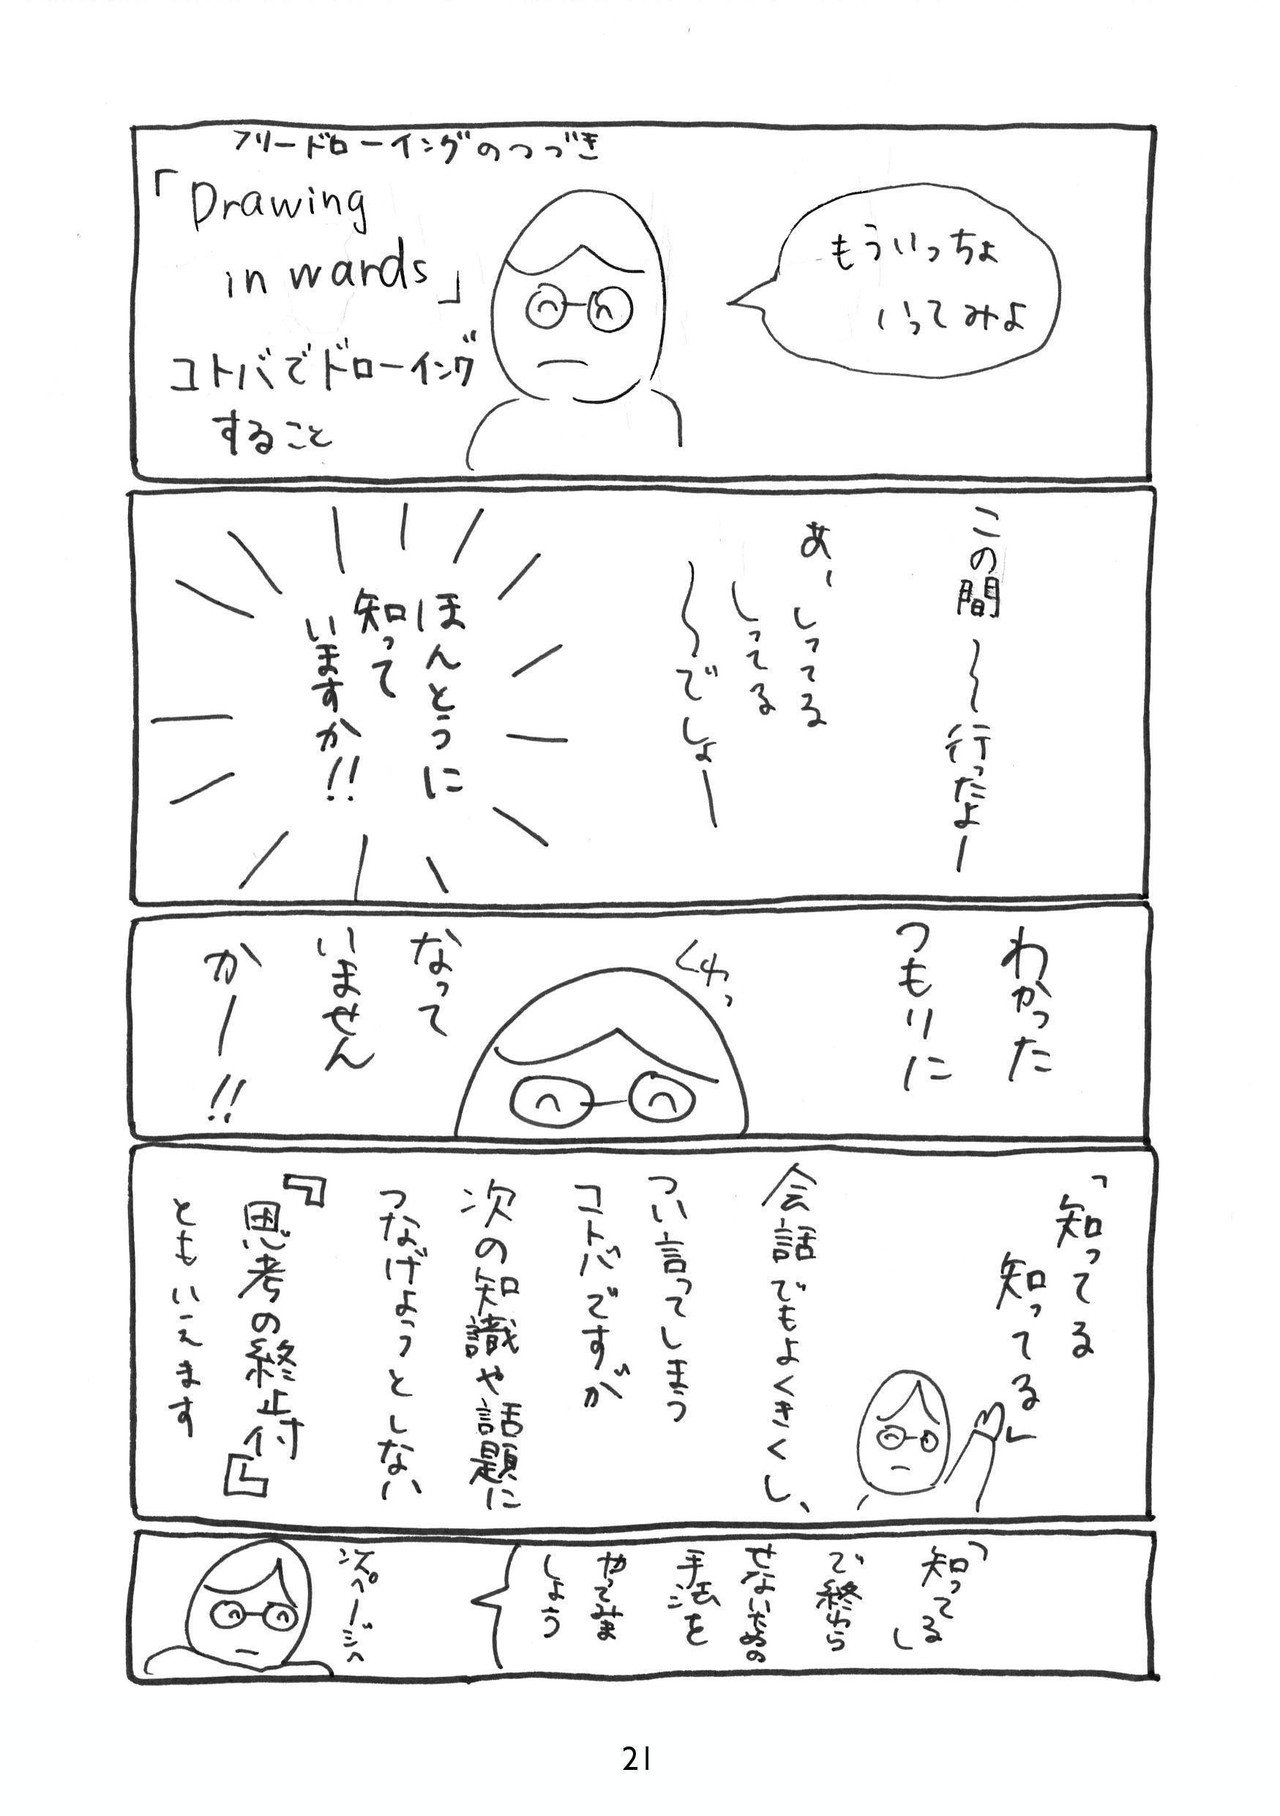 フリードローイングのつづき
「Drawing
in wards」
コトバでドローイング
すること
もういっちょ
いってみよ
この間〜〜行ったよー
あ、しってる
しってる
〜〜でしょー
ほんとうに
知って
いますか!!
わかった
つもりに
くわっ
なって
いません
かー!!
「知ってる
知ってる」
会話でもよくきくし、
つい言ってしまう
コトバですが
次の知識や話題に
つなげようとしない
『思考の終止付』
ともいえます
「知ってる」
で終わら
せないための
手法を
やってみま
しょう
次ページへ
21